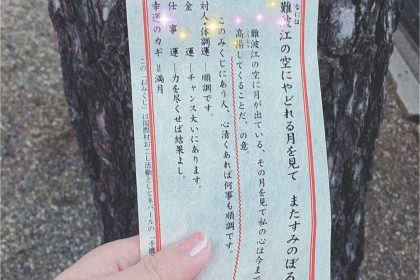 なには
難波江の空にやどれる月を見て　またすみのぼる
難波江の空に月が出ている、その月を見て私の心は今まで
高揚してくることだ、の意。
このみくじにあう人、心清くあれば何事も順調です。
対人・体調運　順調です。
金　運―チャンス大いにあります。
仕事運―力を尽くせば結果よし。
幸運のカギ＝満月
この「おみくじ」は国際村おこし活動としてネパールの「手漉